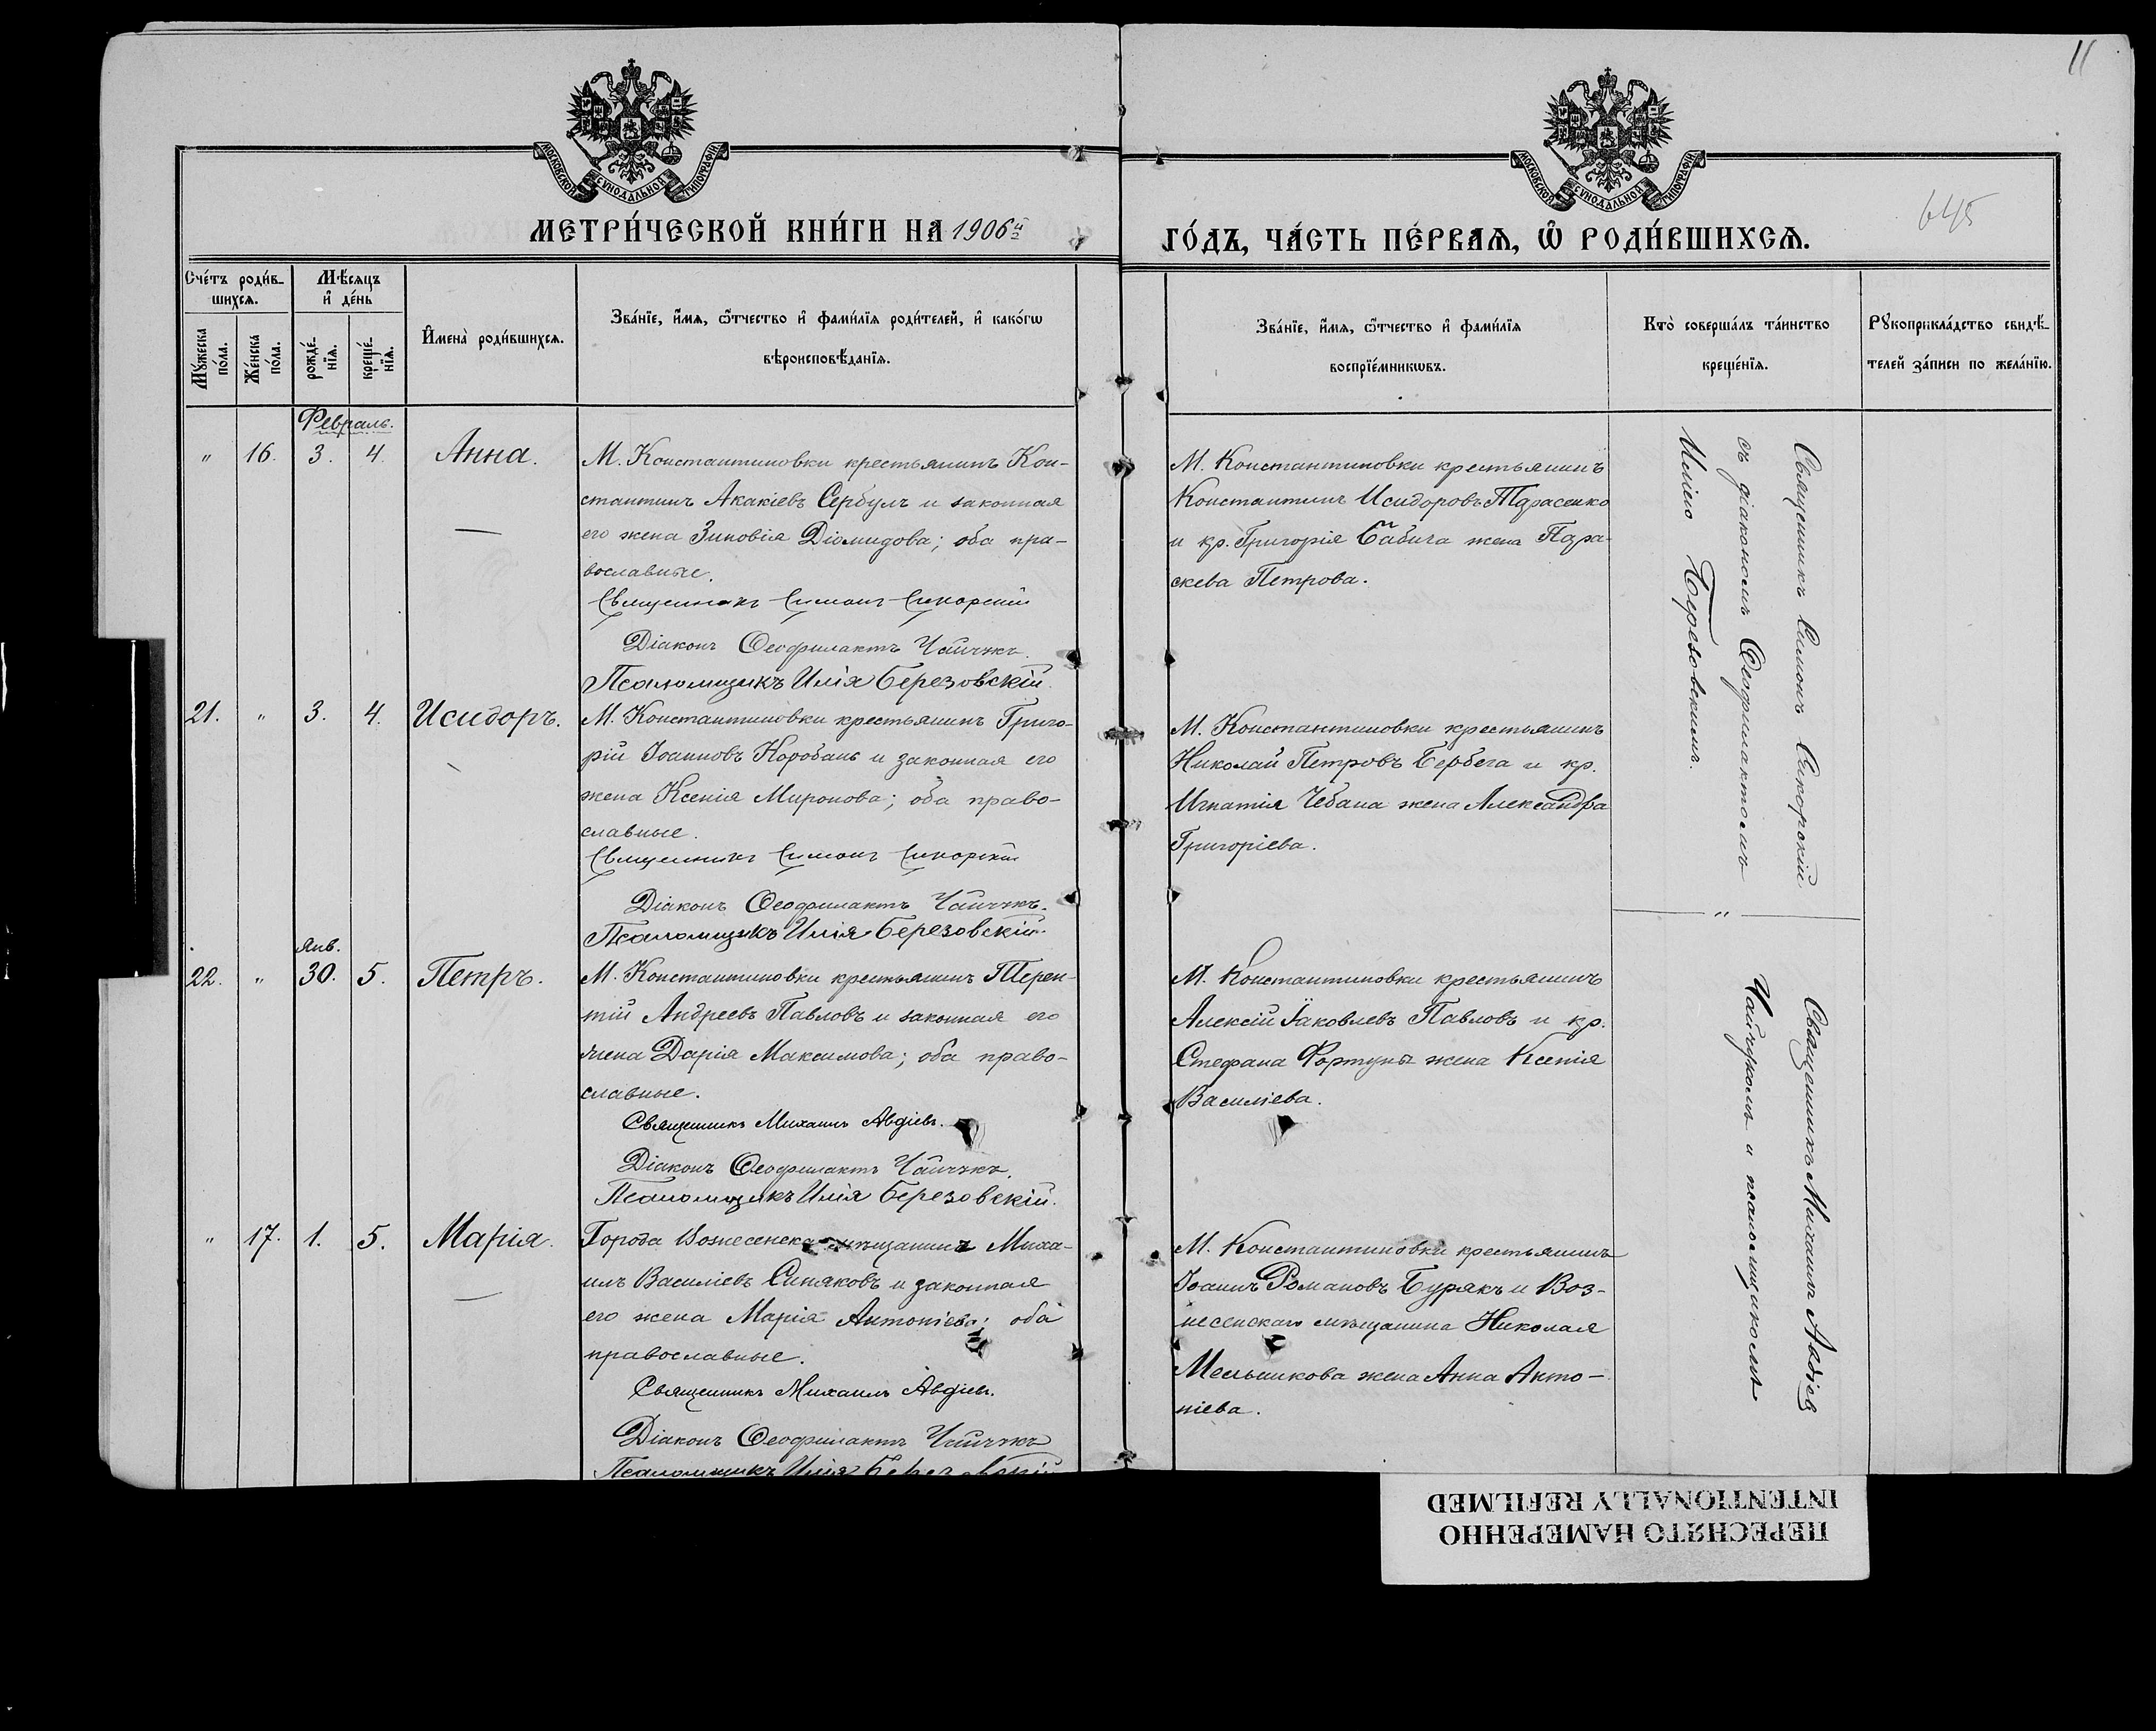 11
645
МОСКОВСКОЙ СУНОДАЛЬНОЙ ТИПОГРАФІИ
МОСКОВСКОЙ СУНОДАЛЬНОЙ ТИПОГРАФІИ
МЕТРИ́ЧЕСКОЙ КНИ́ГИ НА 1906й ГО́ДЪ, ЧА́СТЬ ПЕ́РВАѦ, Ѡ҆ РОДИ́ВШИХСѦ.
Сче́тъ роди́в-
шихсѧ.
Мꙋ́жеска по́ла.
Же́нска по́ла.
Мѣ́сѧцъ
и҆ де́нь
рожде́-
нїѧ.
креще́-
нїѧ.
И҆мена̀ роди́вшихсѧ.
Зва́нїе, и҆́мѧ, ѻ҆́тчество и҆ фами́лїѧ роди́телей, и҆ како́гѡ
вѣроисповѣ́данїѧ.
Зва́нїе, и҆́мѧ, ѻ҆́тчество и҆ фами́лїѧ
воспрїе́мникѡвъ.
Кто̀ соверша́лъ та́инство
креще́нїѧ.
Рꙋкоприкла́дство свидѣ́-
телей за́писи по жела́нїю.
Февраль.
" 16. 3. 4. Анна.
М. Константиновки крестьянинъ Кон-
стантинъ Акакіевъ Сербулъ и законная
его жена Зиновія Діомидова; оба пра-
вославные.
Священникъ Симонъ Сикорскій
Діаконъ Ѳеофилактъ Чайчукъ.
Псаломщикъ Илія Березовскій.
М. Константиновки крестьянинъ
Константинъ Исидоровъ Тарасенко
и кр. Григорія Бабича жена Пара-
скева Петрова.
Священникъ Симонъ Сикорскій
съ діакономъ Ѳеофилактомъ
Иліею Березовскимъ.
21. " 3. 4. Исидоръ.
М. Константиновки крестьянинъ Григо-
рій Іоанновъ Коробань и законная его
жена Ксенія Миронова; оба право-
славные.
Священникъ Симонъ Сикорскій
Діаконъ Ѳеофилактъ Чайчукъ.
Псаломщикъ Илія Березовскій.
М. Константиновки крестьянинъ
Николай Петровъ Бербега и кр.
Игнатія Чебана жена Александра
Григоріева.
"
Янв.
22. " 30. 5. Петръ.
М. Константиновки крестьянинъ Терен-
тій Андреевъ Павловъ и законная его
жена Дарія Максимова; оба право-
славные.
Священникъ Михаилъ Авдіевъ.
Діаконъ Ѳеофилактъ Чайчукъ.
Псаломщикъ Илія Березовскій.
М. Константиновки крестьянинъ
Алексій Іаковлевъ Павловъ и кр.
Стефана Фортуны жена Ксенія
Василіева.
Священникъ Михаилъ Авдіевъ
Чайчукомъ и псаломщикомъ
" 17. 1. 5. Марія.
Города Вознесенска мѣщанинъ Миха-
илъ Василіевъ Синяковъ и законная
его жена Марія Антоніева; оба
православные.
Священникъ Михаилъ Авдіевъ.
Діаконъ Ѳеофилактъ Чайчукъ
Псаломщикъ Илія Березовскій
М. Константиновки крестьянинъ
Іоаннъ Романовъ Бурякъ и Воз-
несенскаго мѣщанина Николая
Мельникова жена Анна Анто-
ніева.
ПЕРЕСНЯТО НАМЕРЕННО
INTENTIONALLY REFILMED